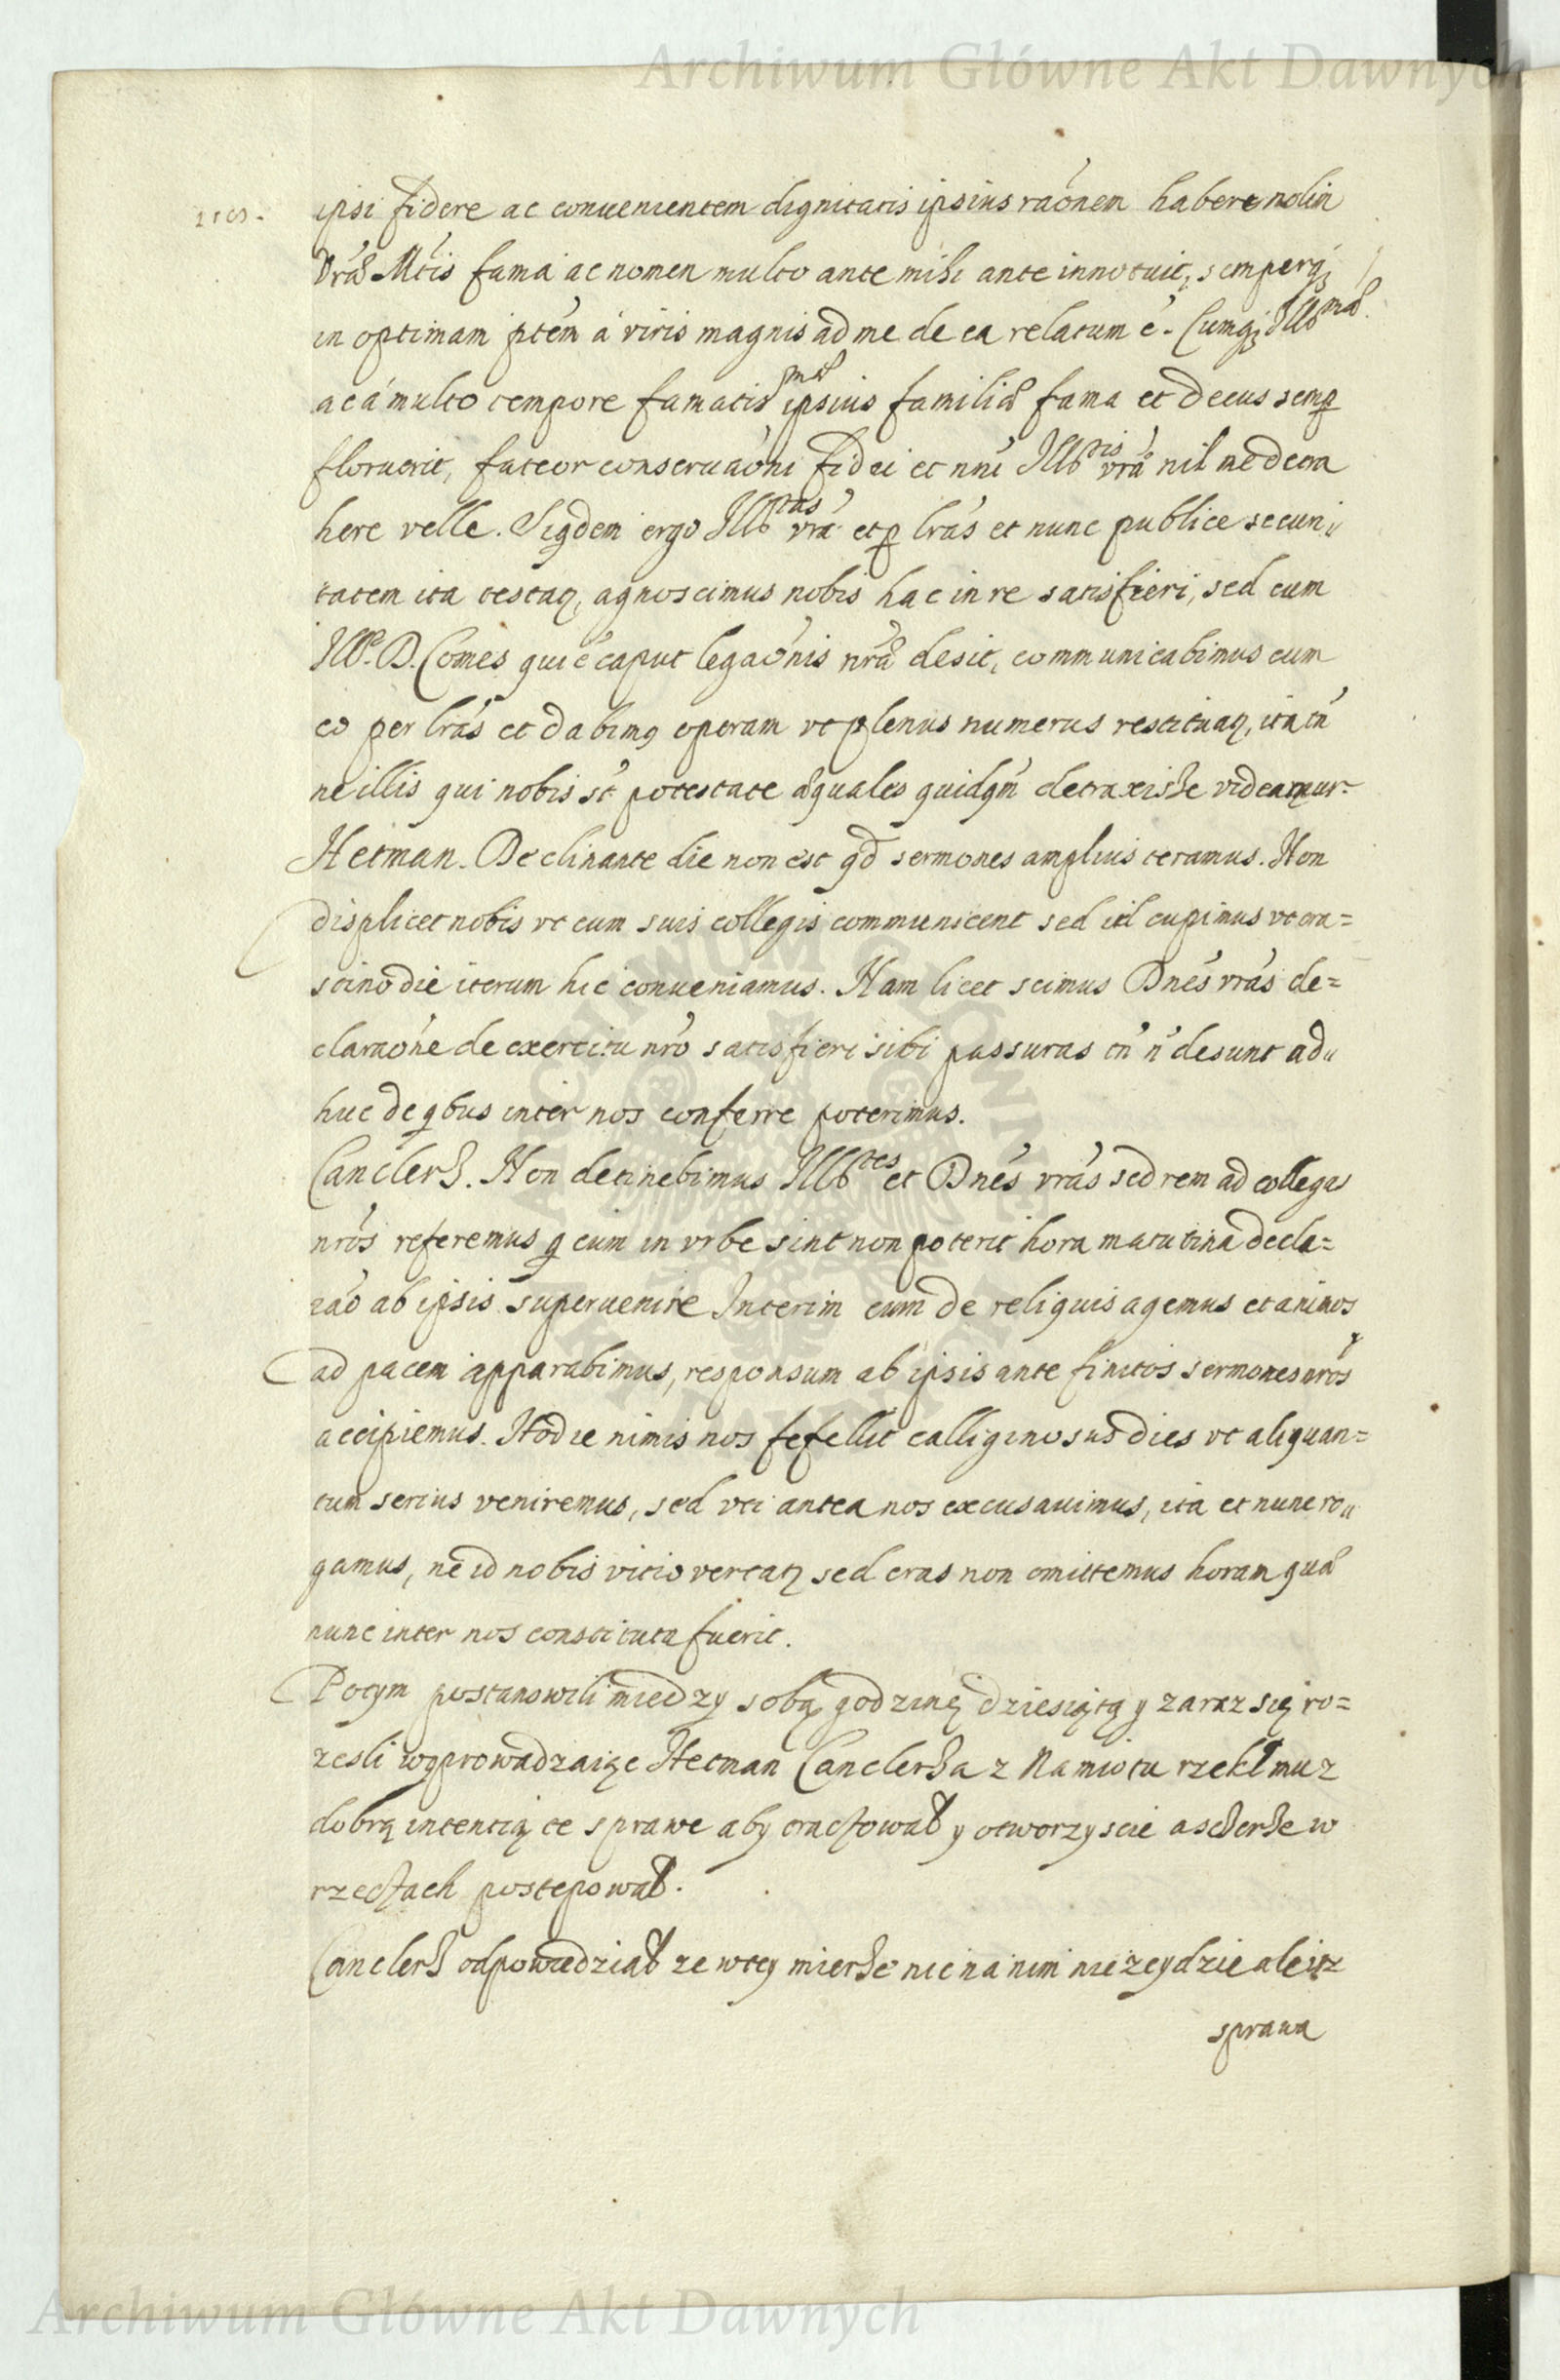 Archiwum Główne Akt Dawnych
ipsi fidere ac conuenientem dignitatis ipsius raōnem habere nolim
Vrae Mtis fama ac nomen multo ante mihi ante innotuit, semperq;
in optimam ptem á viris magnis ad me de ea relatum ē. Cumq; Illmae
ac á multo tempore famatissmae ipsius familiae fama et decus semp
floruerit, fateor conseruaōni fidei et nnī Illtis vrae nil me detra
here velle. Siqdem ergo Illtas vra et p lras et nunc publice securi„
tatem ita testaŋ, agnoscimus nobis hac in re satisfieri, sed cum
Ill. D. Comes qui ē caput legaōnis nrae desit, communicabimus cum
eo per lras et dabimq operam vt plenus numerus restituaŋ, ita tn
ne illis qui nobis st potestate aequales quidqm detraxisse videamur.
Hetman. Declinante die non est qd sermones amplius teramus. Non
displicet nobis vt cum suis collegis communicent sed id cupimus vt cra=
stino die iterum hic conueniamus. Nam licet scimus Dnes vras de=
claraōne de exercitu nro satisfieri sibi passuras tn n desunt ad„
huc de qbus inter nos conferre poterimus.
Canclerz. Non detinebimus Illtes et Dnes vras sed rem ad collegas
nros referemus q cum in vrbe sint non poterit hora matutina decla=
raō ab ipsis superuenire Interim cum de reliquis agemus et animos
ad pacem apparabimus, responsum ab ipsis ante finitos sermones nros
accipiemus. Hodie nimis nos fefellit calliginosus dies vt aliquan=
tum serius veniremus, sed vti antea nos excusauimus, ita et nunc ro„
gamus, ne id nobis vitio vertaŋ sed cras non omittemus horam quae
nunc inter nos constituta fuerit.
Potym postanowili miedzy sobą godzinę dziesiątą y zaraz się ro=
zesli wyprowadzaiąc Hetman Canclerza z Namiotu rzekł mu z
dobrą intentią te sprawe aby tractował y otworzyscie a sczerze w
rzeczach postepował.
Canclerz odpowiedział ze w tey mierze nic na nim nie zeydzie ale iz
sprawa
Archiwum Główne Akt Dawnych